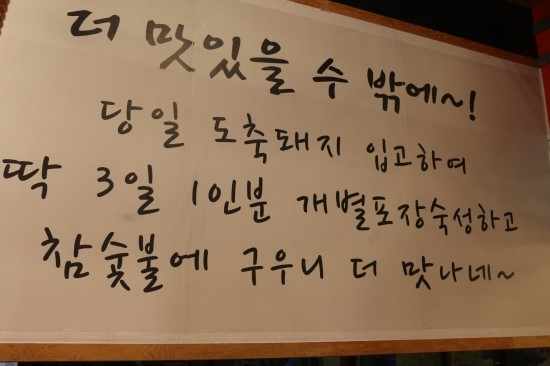 더 맛있을 수 밖에~!
당일 도축돼지 입고하여
딱 3일 1인분 개별포장숙성하고
참숯불에 구우니 더 맛나네~